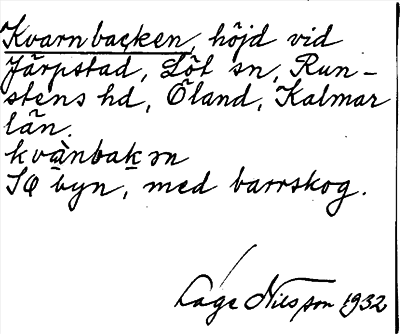 Kvarnbacken, höjd vid
Järpstad, Löt sn, Run-
stens hd, Öland, Kalmar
län.
kvànbakən
SO byn, med barrskog.
Lage Nilsson 1932